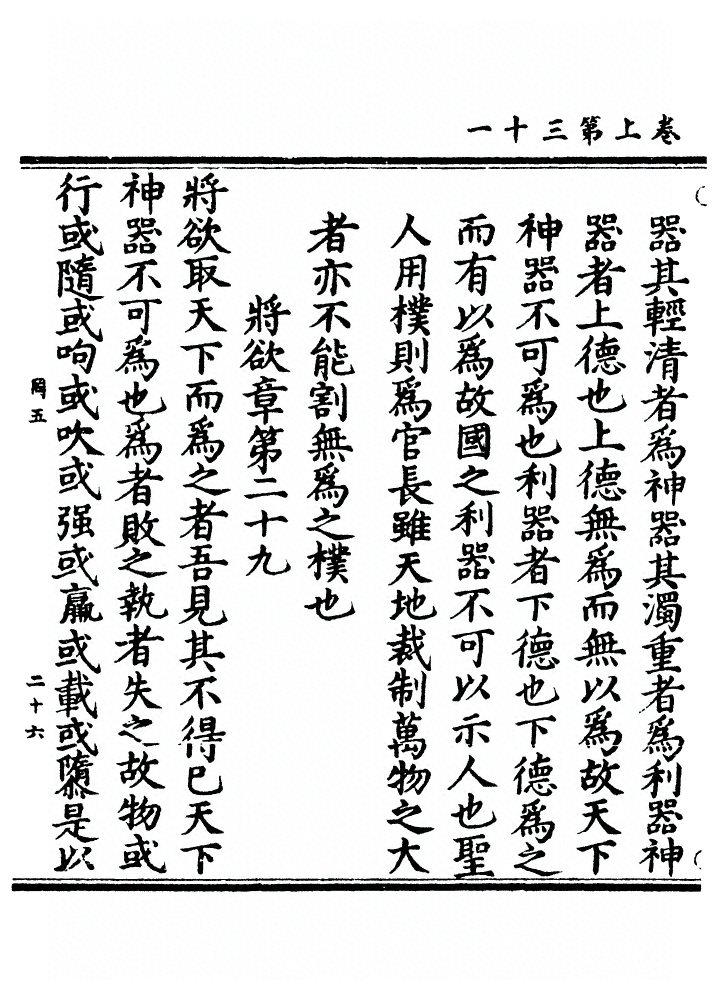 卷上第三十一
器其輕清者爲神器其濁重者爲利器神
器者上德也上德無爲而無以爲故天下
神器不可爲也利器者下德也下德爲之
而有以爲故國之利器不可以示人也聖
人用樸則爲官長雖天地裁制萬物之大
者亦不能割無爲之樸也
將欲章第二十九
將欲取天下而爲之者吾見其不得已天下
神器不可爲也爲者敗之執者失之故物或
行或隨或呴或吹或强或羸或載或隳是以
罔五
二十六